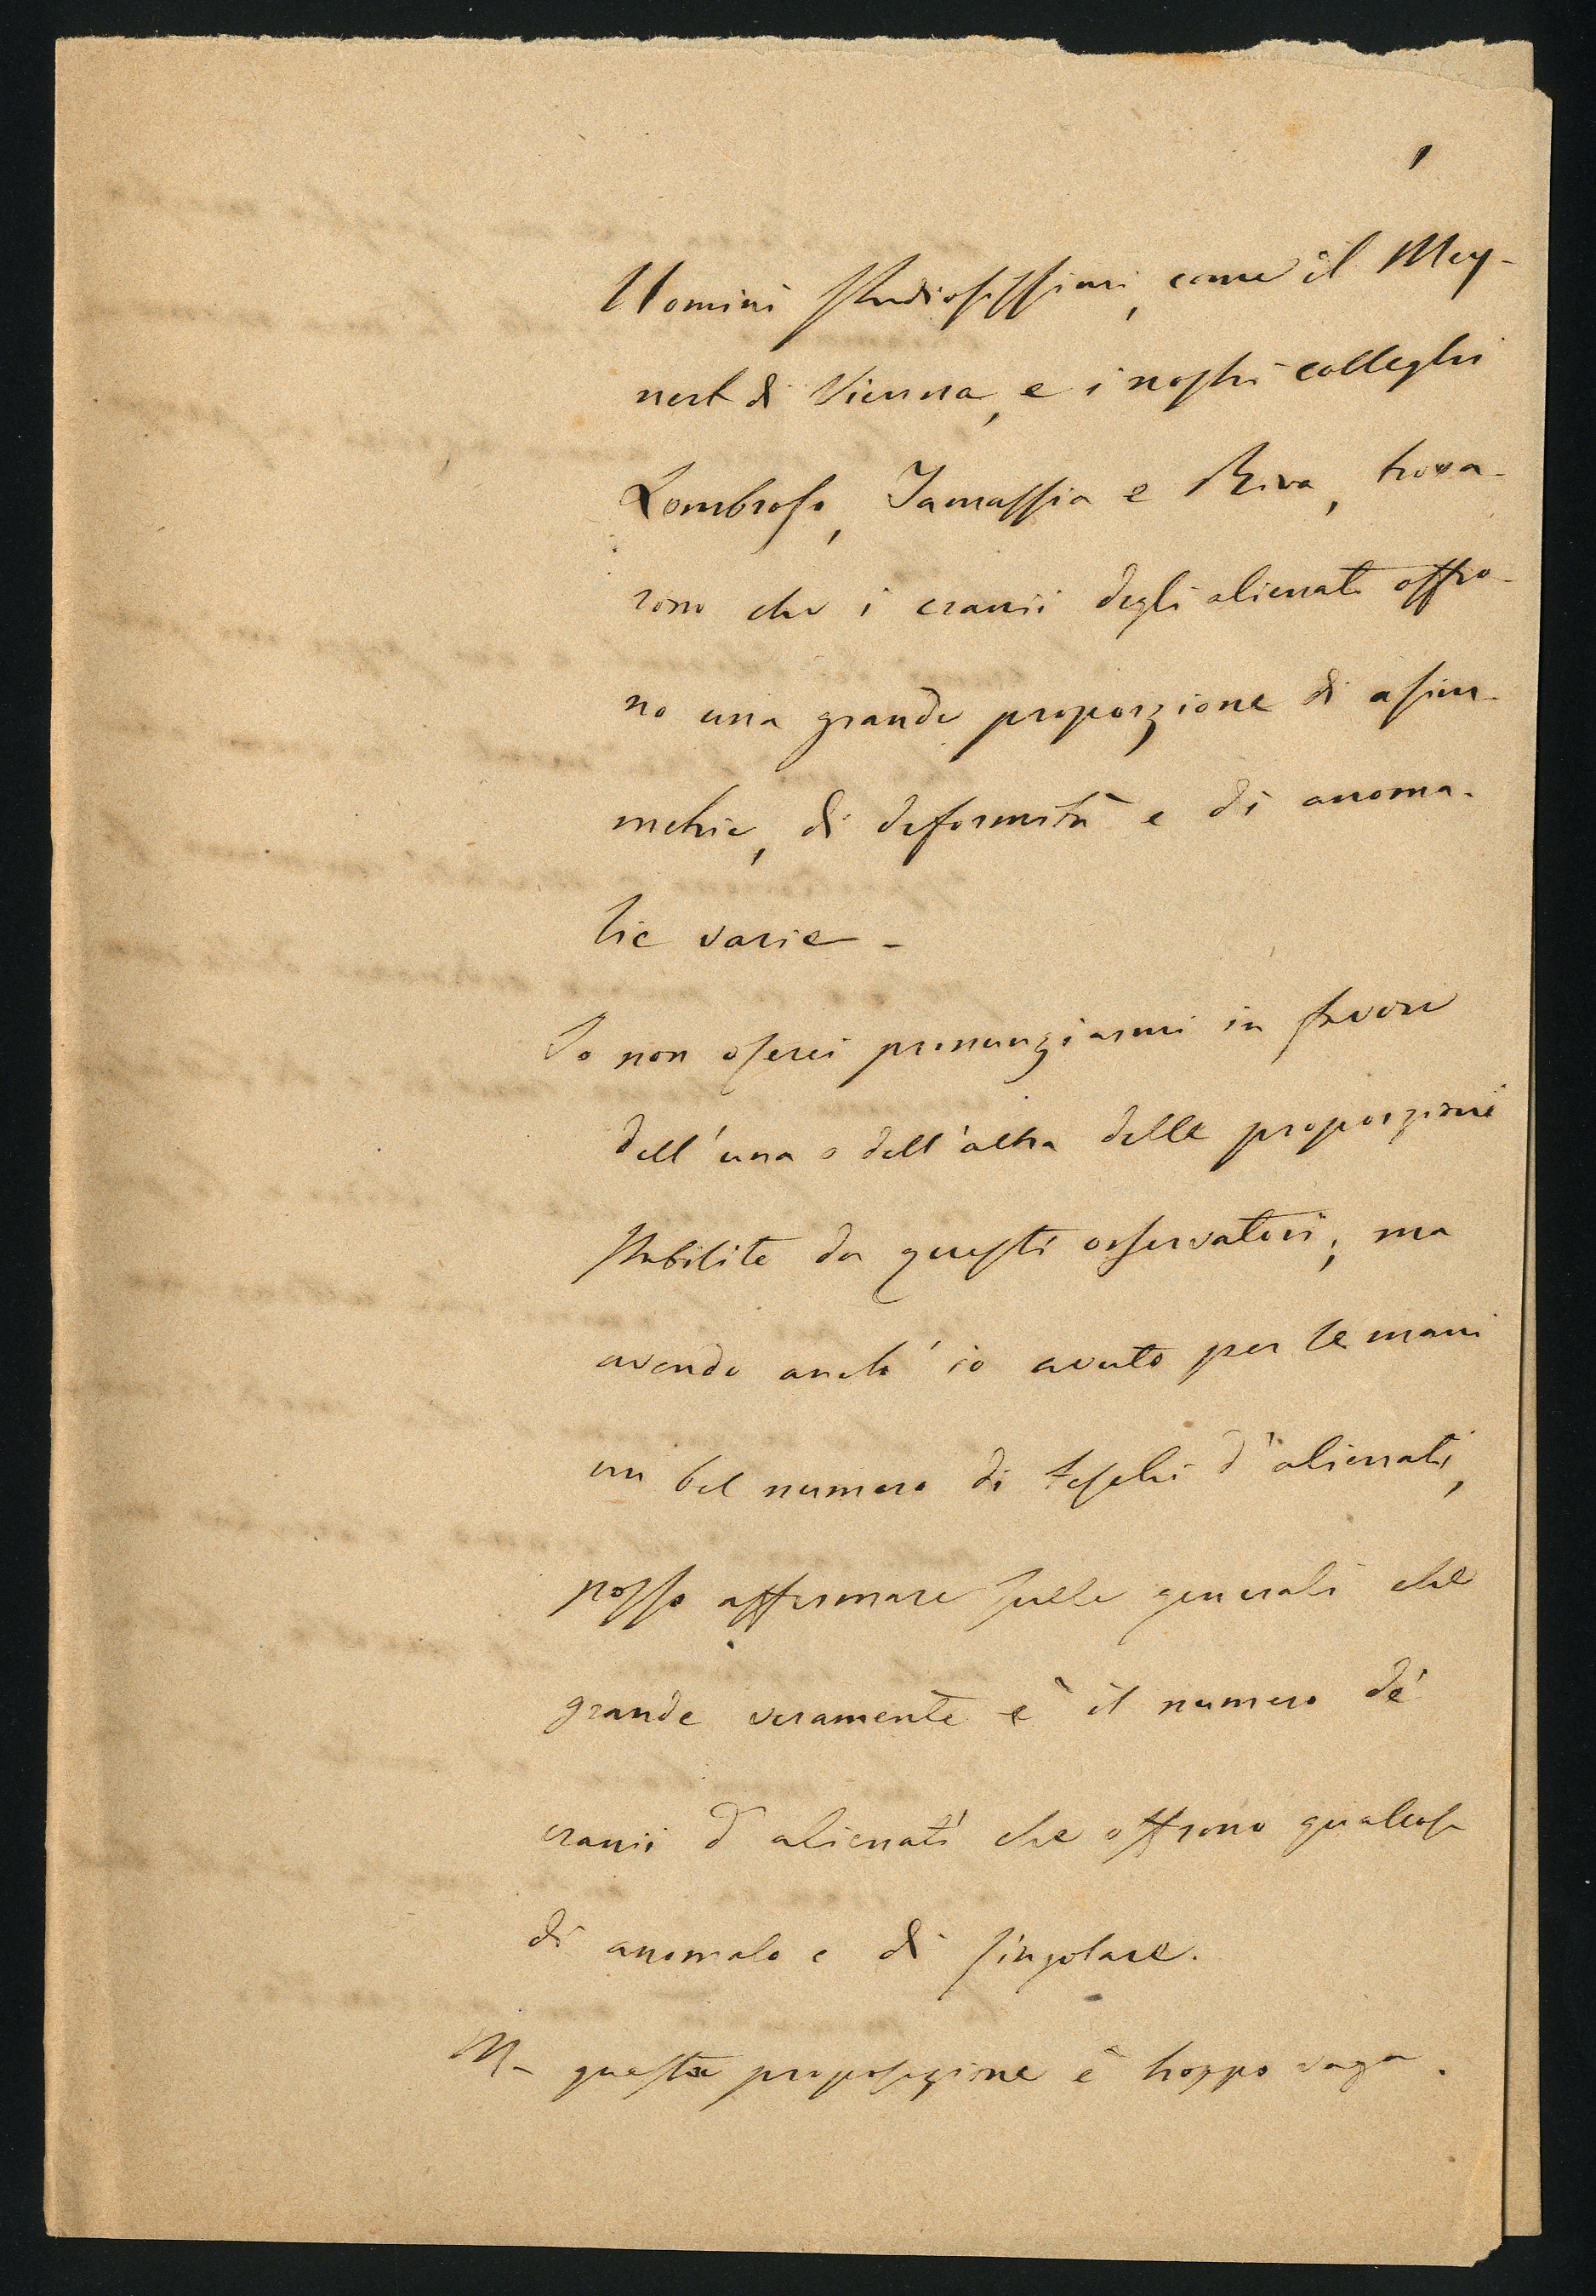 1
Uomini studiosissimi, come il Mey-
nert di Vienna, e i nostri colleghi
Lombroso, Tamassia e Riva, trova-
rono che i cranii degli alienati offro-
no una grande proporzione di asim-
metrie, di deformità e di anoma-
lie varie -
Io non oserei pronunziarmi in favore
dell'una o dell'altra delle proporzioni
stabilite da questi osservatori; ma
avendo anch'io avuto per le mani
un bel numero di teschi d'alienati,
posso affermare sulle generali che
grande veramente è il numero de'
cranii d'alienati che offrono qualcosa
di anomalo e di singolare.
Ma questa proposizione è troppo vaga.